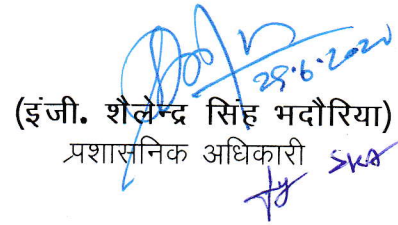 29.6.2020
(इंजी. शैलेन्द्र सिंह भदौरिया)
प्रशासनिक अधिकारी